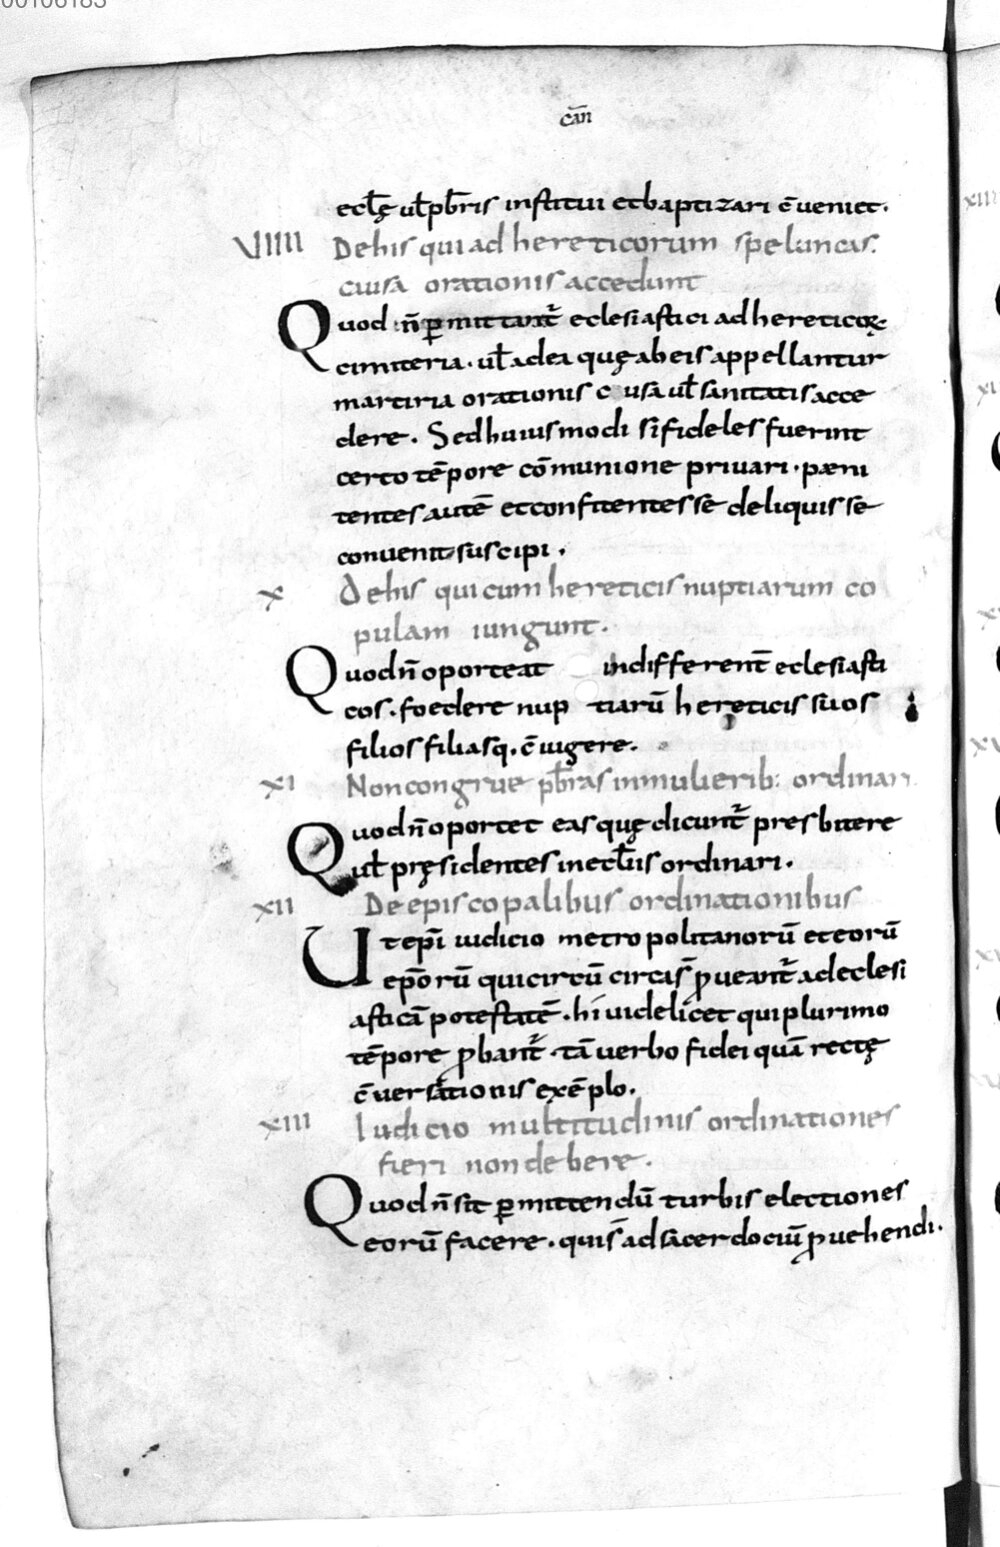 00106183
cān
ecl̄ę ul̄ pb̄ris institui et baptizari c̄ueniet.
VIIII De his qui ad hereticorum speluncas.
causa orationis accedunt
Quod n̄ ꝑmittant̄ eclesiastici ad hereticoꝝ
cimiteria. ul̄ ad ea quę ab eis appellantur
martiria orationis causa ul̄ sanitatis acce
dere. Sed huiusmodi si fideles fuerint
certo tēpore cōmunione privari. pæni
tentes autē et confitentes se deliquisse
convenit suscipi.
X De his qui cum hereticis nuptiarum co
pulam iungunt.
Quod n̄ oporteat indifferent̄ eclesiasti
cos. foedere nup tiarū hereticis suos
filios filiasq. c̄iugere.
XI Non congrue pb̄ras in mulierib: ordinari
Quod n̄ oportet eas quę dicunt̄ presbitere
ul̄ pręsidentes in ecl̄iis ordinari.
XII De episcopalibus ordinationibus
Ut ep̄i iudicio metropolitanorū et eorū
ep̄orū qui circū circas̄ ꝓveant̄ ad eclesi
asticā potestatē. hi videlicet qui plurimo
tēpore ꝓbant̄. tā verbo fidei quā rectę
c̄versationis exēplo.
XIII Iudicio multitudinis ordinationes
fieri non debere.
Quod n̄ sit ꝑmittendū turbis electiones
eorū facere. quis̄ ad sacerdociū ꝓvehendi.